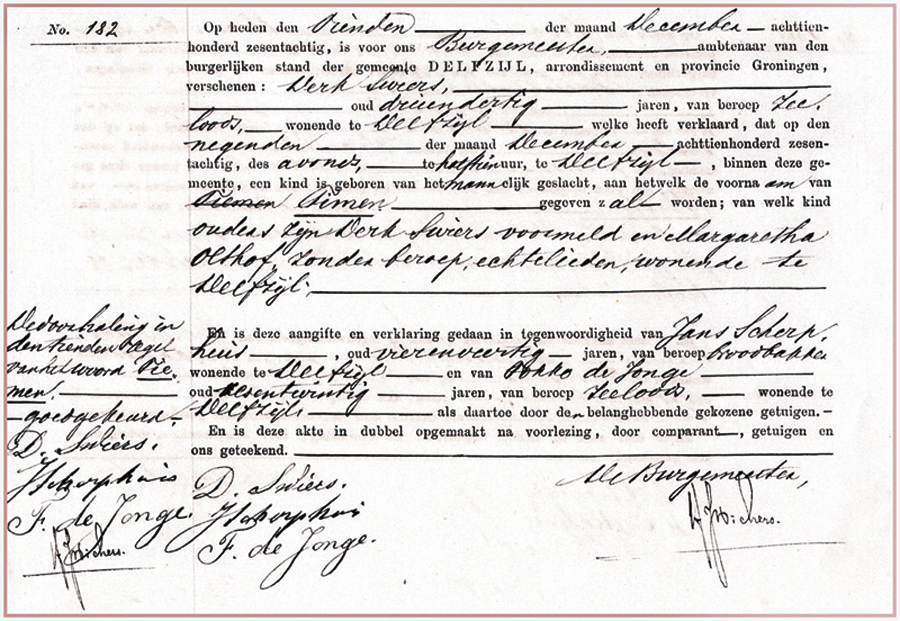 No. 182
Op heden den Tienden der maand December achttien-
honderd zesentachtig, is voor ons Burgemeester, ambtenaar van den
burgerlijken stand der gemeente DELFZIJL, arrondissement en provincie Groningen,
verschenen: Derk Swiers,
oud drieendertig jaren, van beroep Zee-
loods, wonende te Delfzijl welke heeft verklaard, dat op den
negenden der maand December achttienhonderd zesen-
tachtig, des avonds, te half tien uur, te Delfzijl, binnen deze ge-
meente, een kind is geboren van het mannelijk geslacht, aan hetwelk de voornaam van
Tiemen Simen gegeven zal worden; van welk kind
ouders zijn Derk Swiers voormeld en Margaretha
Olthof, zonder beroep, echtelieden, wonende te
Delfzijl.
En is deze aangifte en verklaring gedaan in tegenwoordigheid van Jans Scherp-
huis, oud vierenveertig jaren, van beroep broodbakker
wonende te Delfzijl en van Fokko de Jonge
oud zesentwintig jaren, van beroep Zeeloods, wonende te
Delfzijl als daartoe door den belanghebbende gekozene getuigen.
En is deze akte in dubbel opgemaakt na voorlezing, door comparant, getuigen en
ons geteekend.
De Burgemeester,
D. Swiers.
J Scherphuis
F. de Jonge.
Wichers.
De doorhaling in
den tienden regel
van het woord Tie-
men.
goedgekeurd.
D. Swiers.
J Scherphuis
F. de Jonge.
Wichers.